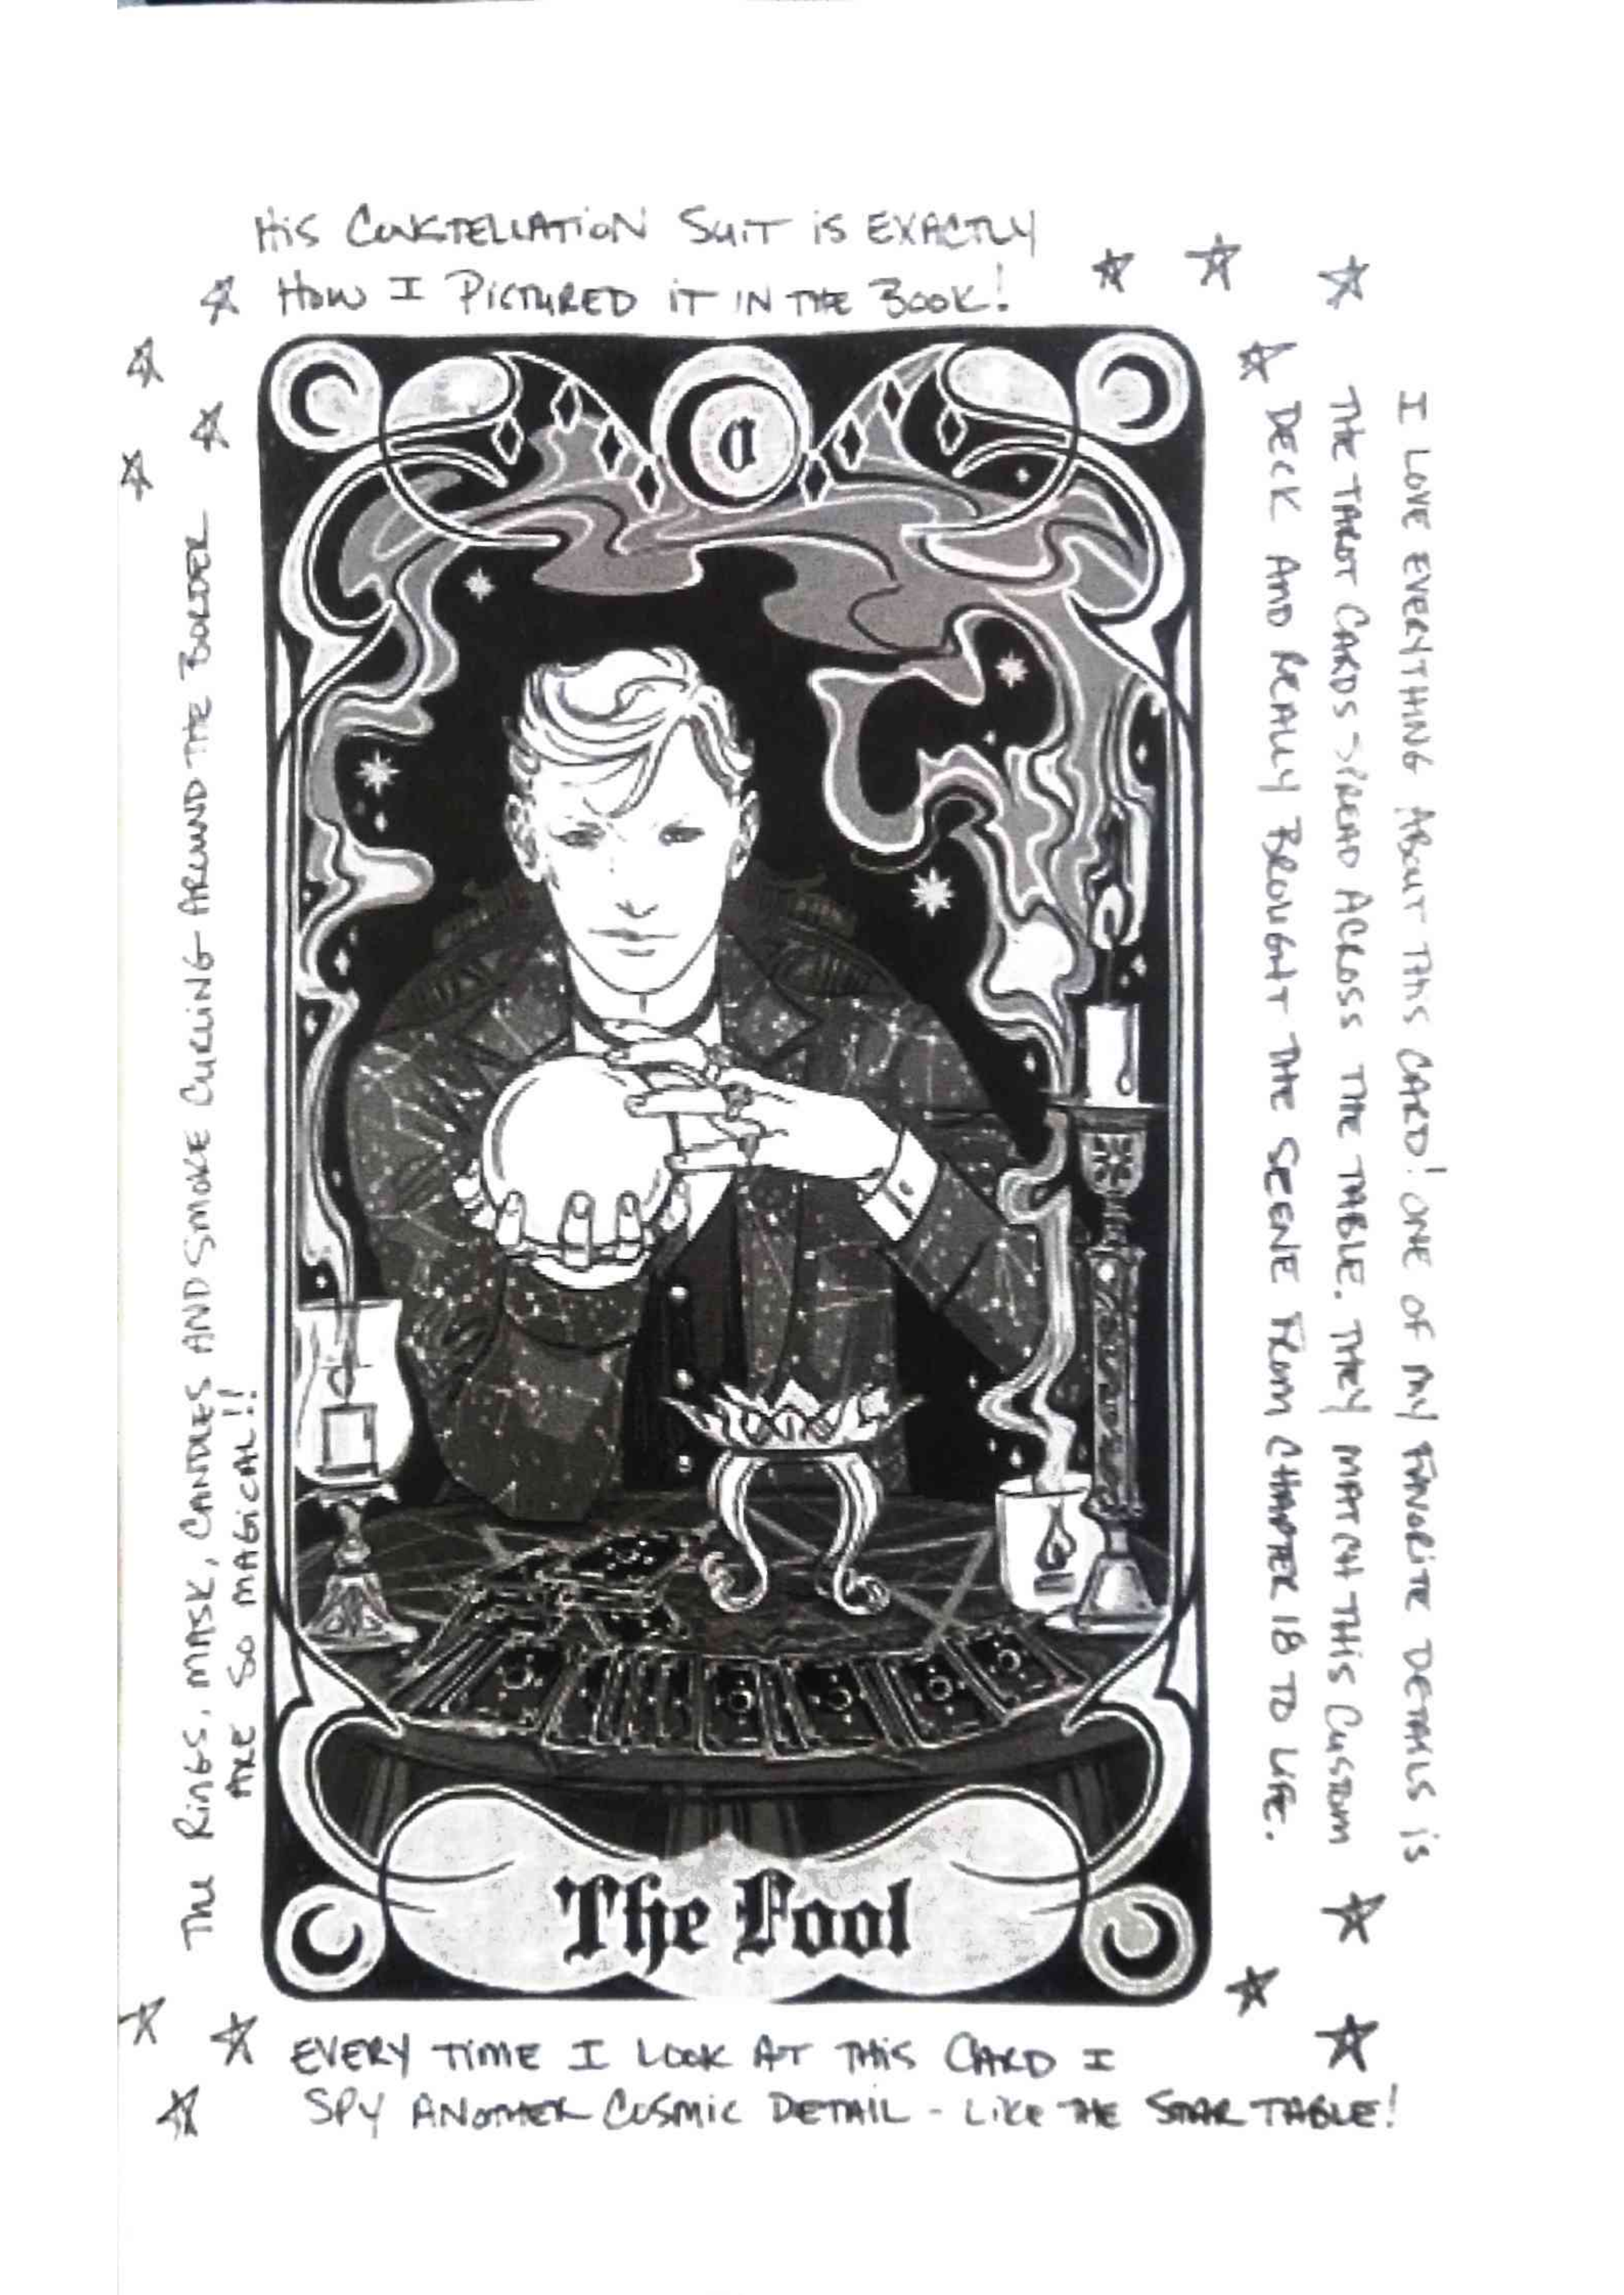 HIS CONSTELLATION SUIT IS EXACTLY
HOW I PICTURED IT IN THE BOOK!
I LOVE EVERYTHING ABOUT THIS CARD! ONE OF MY FAVORITE DETAILS IS
THE TAROT CARDS SPREAD ACROSS THE TABLE. THEY MATCH THIS CUSTOM
DECK AND REALLY BROUGHT THE SCENE FROM CHAPTER 18 TO LIFE.
THE RINGS, MASK, CANDLES AND SMOKE CURLING AROUND THE BORDER
ARE SO MAGICAL!!
0
The Fool
EVERY TIME I LOOK AT THIS CARD I
SPY ANOTHER COSMIC DETAIL - LIKE THE STAR TABLE!